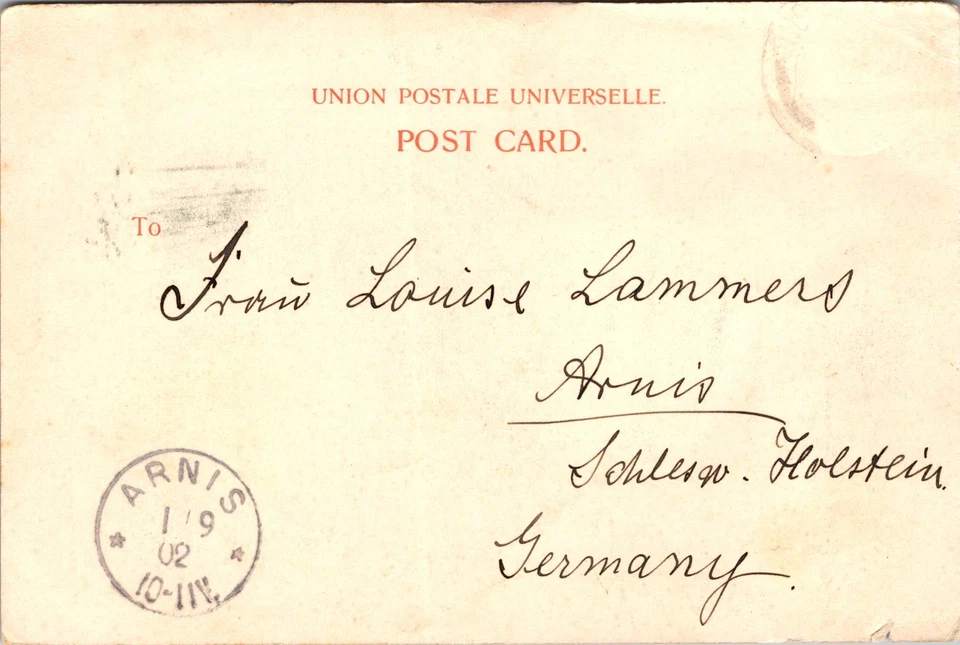 UNION POSTALE UNIVERSELLE.
POST CARD.
To
Frau Louise Lammers
Arnis
Schlesw. Holstein.
Germany.
ARNIS
1/9
02
10-11V.